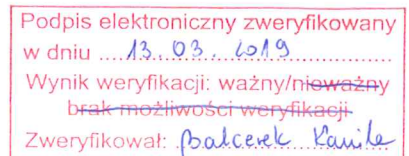 Podpis elektroniczny zweryfikowany
w dniu 13.03.2019
Wynik weryfikacji: ważny/nieważny
brak możliwości weryfikacji
Zweryfikował: Balcerek Kamila